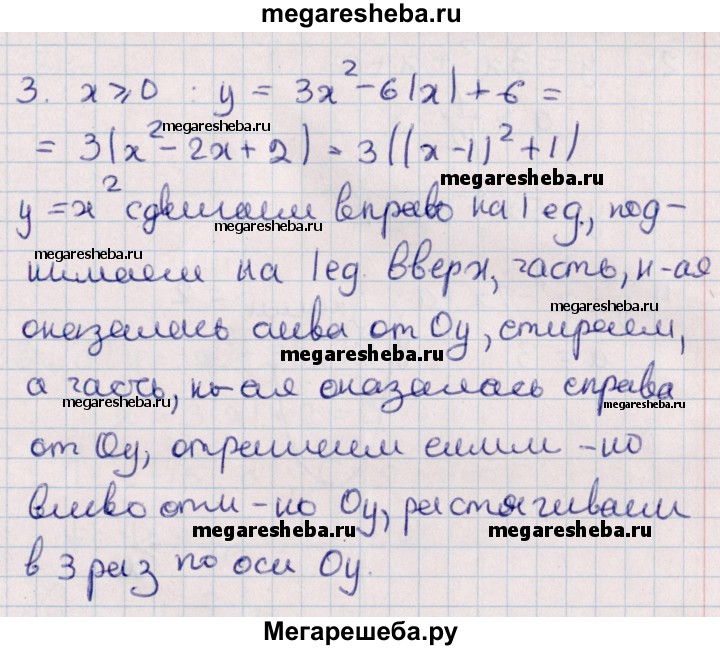 megaresheba.ru
3. x ⩾ 0 : y = 3x² - 6|x| + 6 =
= 3(x² - 2x + 2) = 3((x - 1)² + 1)
megaresheba.ru
megaresheba.ru
y = x² сдвигаем вправо на 1 ед., под-
megaresheba.ru
нимаем на 1 ед. вверх, часть, к-ая
megaresheba.ru
оказалась слева от Oy, стираем,
megaresheba.ru
а часть, к-ая оказалась справа
megaresheba.ru
megaresheba.ru
от Oy, отражаем симм-но
влево отн-но Oy, растягиваем
megaresheba.ru
megaresheba.ru
в 3 раз по оси Oy.
Мегарешеба.ру